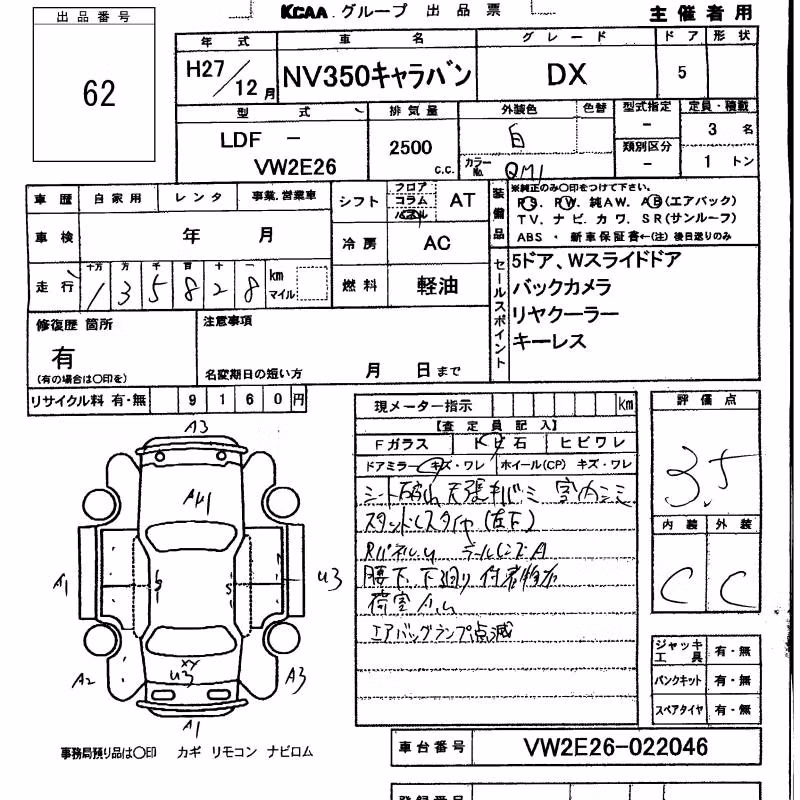 KCAA. グループ 出品票
主催者用
出品番号
62
年式 車名 グレード ドア 形状
H27/12月 NV350キャラバン DX 5
型式 排気量 外装色 色替 型式指定 定員・積載
LDF － VW2E26
2500 c.c.
白
カラーNo. QM1
－
類別区分
－
3 名
1 トン
車歴 自家用 レンタ 事業.営業車
シフト フロア コラム パネル AT
車検 年 月
冷房 AC
走行 十万 万 千 百 十 一
1 3 5 8 2 8 km マイル
燃料 軽油
装備品
※純正のみ○印をつけて下さい。
PS、PW、純AW、AB(エアバック)
TV、ナビ、カワ、SR(サンルーフ)
ABS・新車保証書←(注)後日送りのみ
セールスポイント
5ドア、Wスライドドア
バックカメラ
リヤクーラー
キーレス
修復歴 箇所
有
(有の場合は○印を)
注意事項
名変期日の短い方 月 日まで
リサイクル料 有・無 9160円
現メーター指示 km
【査定員記入】
Fガラス トビ石 ヒビワレ
ドアミラー キズ・ワレ ホイール(CP) キズ・ワレ
シート破れ 天張キバミ 室内シミ
スタンドレスタイヤ(左下)
RパネルU テールレンズA
腰下、下回り付着物有
荷室
エアバッグランプ点滅
評価点
3.5
内装 外装
C C
ジャッキ工具 有・無
パンクキット 有・無
スペアタイヤ 有・無
A3
A4 1
A1
U3
S
S
XY
U3
A2
A3
A1
事務局預り品は○印 カギ リモコン ナビロム
車台番号 VW2E26-022046
登録番号